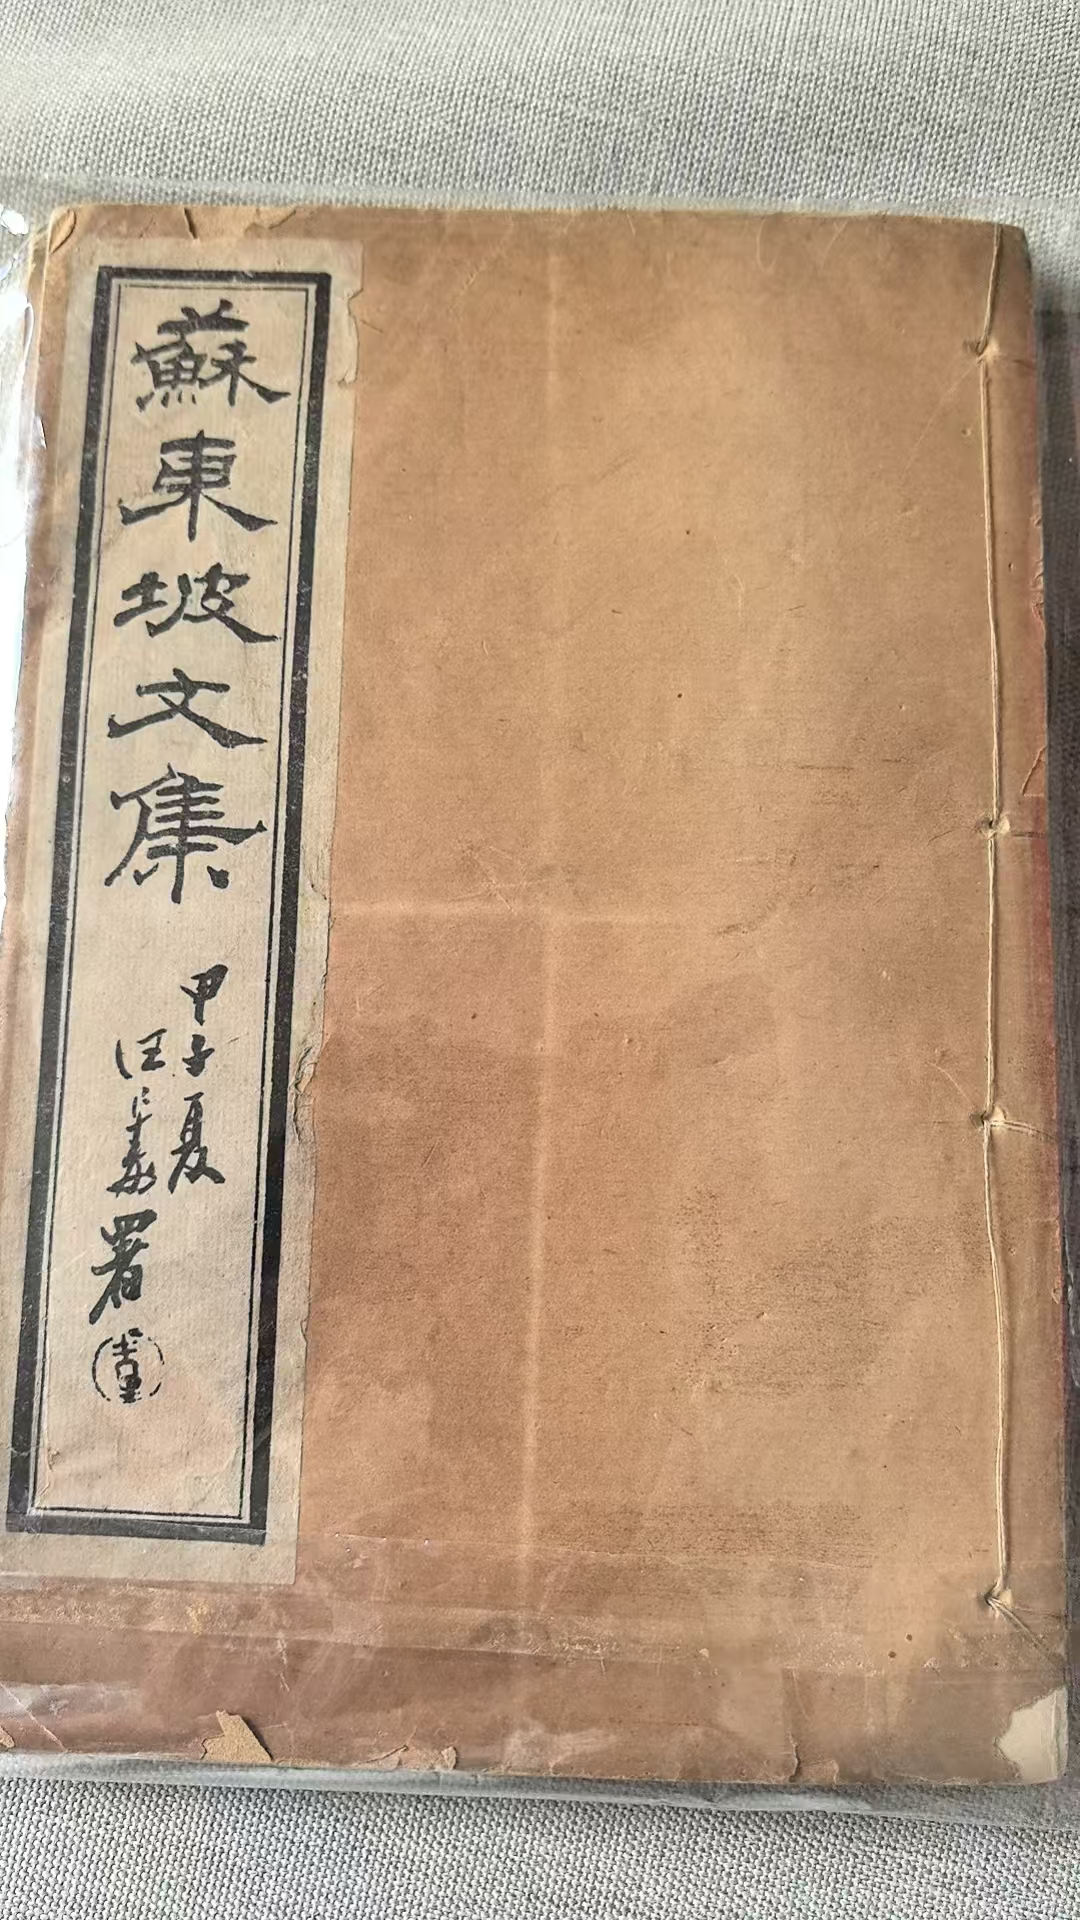 蘇東坡文集
甲子夏
汪 署